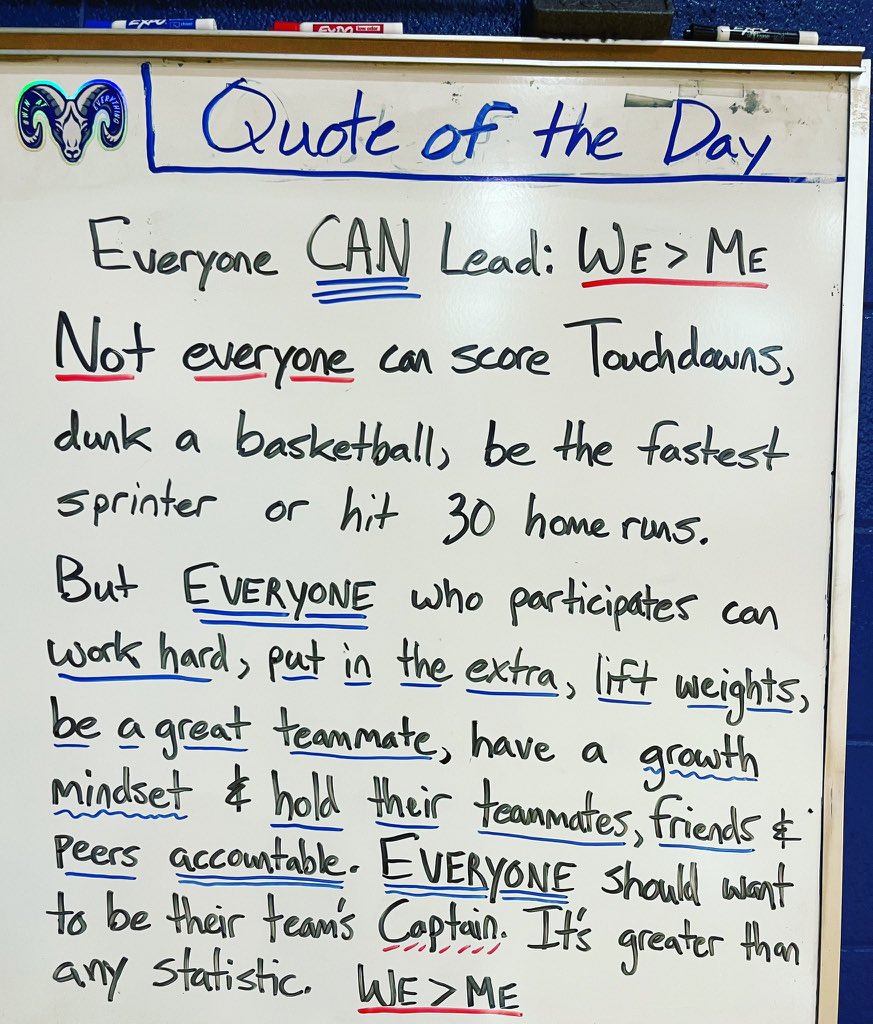 EXPO
EXPO
EXPO
WIN AT EVERYTHING
Quote of the Day
Everyone CAN Lead: WE > ME
Not everyone can score Touchdowns,
dunk a basketball, be the fastest
sprinter or hit 30 home runs.
But EVERYONE who participates can
work hard, put in the extra, lift weights,
be a great teammate, have a growth
mindset & hold their teammates, friends &
peers accountable. EVERYONE should want
to be their team's Captain. It's greater than
any statistic. WE > ME